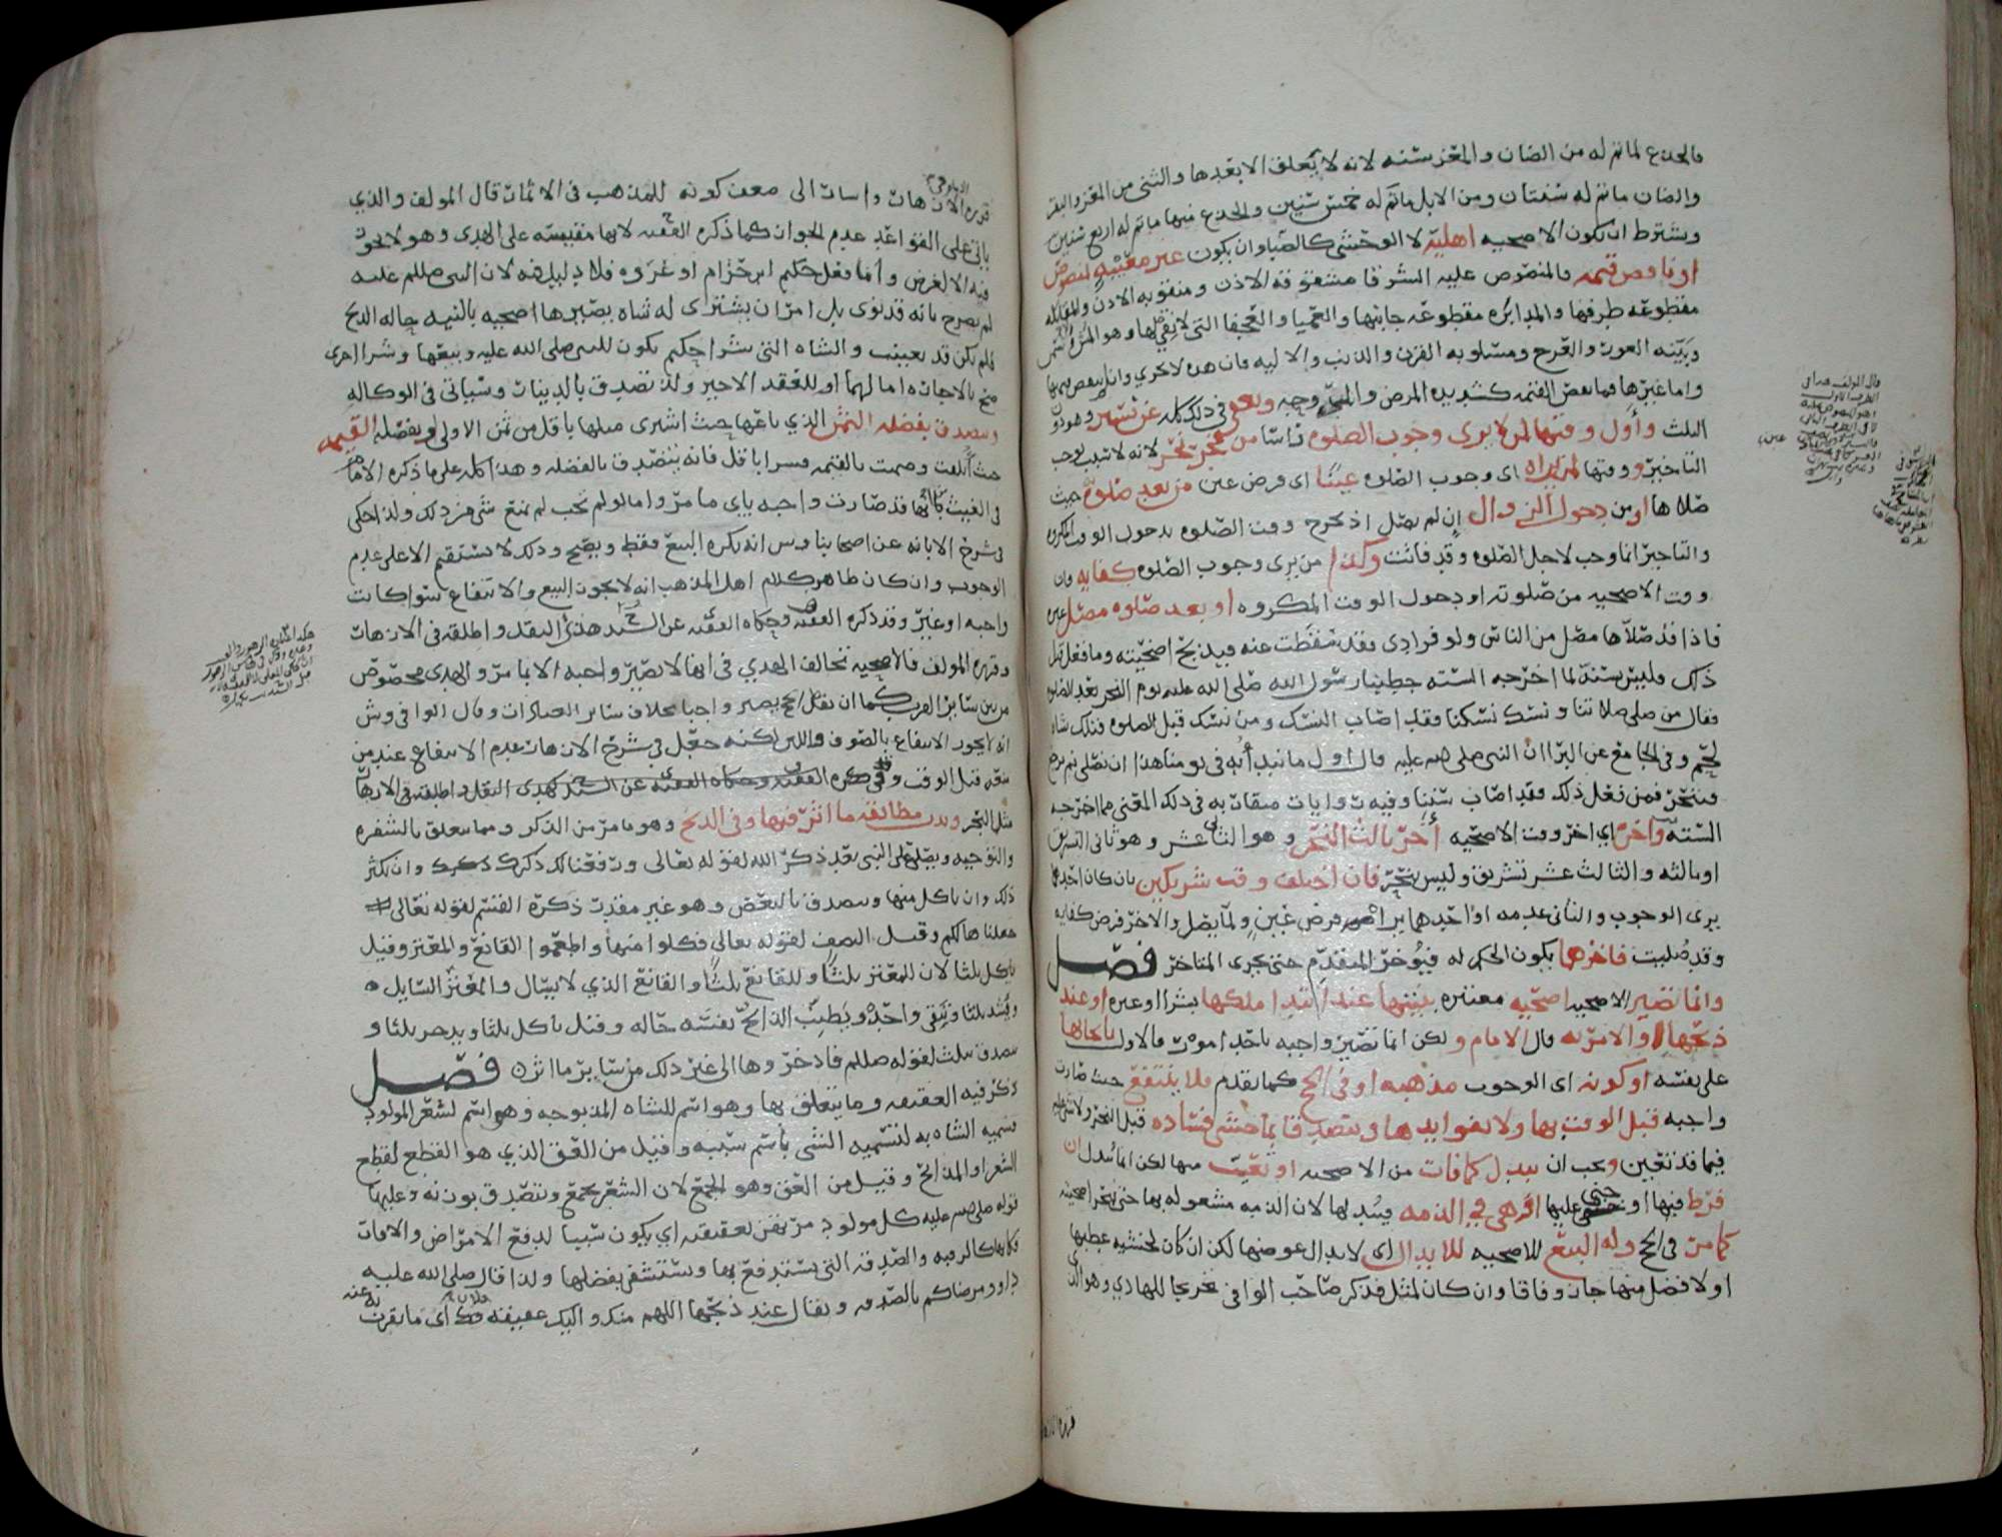 فالجذع ما تم له من الضان والمعز سنه لانه لا يتعلق الا بعدها والثنى من المعز والبقر
والضان ما تم له سنتان ومن الابل ما تم له خمس سنين والجذع منها ما تم له اربع سنين
ويشترط ان تكون الاضحيه اهليه لا الوحشى كالضبا وان يكون غير معيبه لمنصوص
او ناقص قيمه فالمنصوص عليه الشرقا مشقوقه الاذن ومثقوبه الاذن والمقابله
مقطوعه طرفها والمدابره مقطوعه جانبها والعميا والعجفا التى لا نقى لها وهو المخ
وبينه العور والعرج ومسلوبه القرن والذنب والاليه فان هذه لا تجزي وان لم ينقص قيمتها
واما غيرها فما نقص القيمه كشديده المرض
الثلث واول وقتها لمن لا يرى وجوب الصلوه راسا من فجر النحر لانه لا سبب يوجب
التاخير ووقتها لمن يراه اى وجوب الصلوه عينا اى فرض عين من بعد صلوته حيث
صلاها او من دخول الزوال ان لم يصل اذ يخرج وقت الصلوه بدخول الوقت المكروه
والتاخير انما وجب لاجل الصلوه وقد فاتت وكذا من يرى وجوب الصلوه كفايه فان
وقت الاضحيه من صلوته او دخول الوقت المكروه او بعد صلوه مصل غيره
فاذا قد صلاها مصل من الناس ولو فرادى فقد سقطت عنه فيذبح اضحيته وما فعل قبل
ذلك فليس بسنه لما اخرجه السته خطبنا رسول الله صلى الله عليه يوم النحر بعد الصلوه
فقال من صلى صلاتنا ونسك نسكنا فقد اصاب النسك ومن نسك قبل الصلوه فتلك شاه
لحم وفى الجامع عن البرا ان النبى صلى الله عليه قال اول ما نبدأ به فى يومنا هذا ان نصلى ثم نرجع
فننحر فمن فعل ذلك فقد اصاب سنتنا وفيه روايات متقاربه فى ذلك المعنى مما اخرجه
السته واخر اي اخر وقت الاضحيه اخر ثالث النحر وهو الثانى عشر وهو ثانى التشريق
او ثالثه والثالث عشر تشريق وليس بنحر فان اختلف وقت شريكين بان كان احدهما
يرى الوجوب والثانى عدمه او احدهما يراه فرض عين ولما يصل والاخر فرض كفايه
وقد صليت فاخرهما يكون الحكم له فيؤخر المتقدم حتى يجرى المتاخر فصل
وانما تصير الاضحيه اضحيه معتبره بنيتها عند ابتدا ملكها بشرا او غيره او عند
ذبحها والامر به قال الامام ولكن انما تصير واجبه باحد امور فالاول بايجابها
على نفسه او كونه اى الوجوب مذهبه او فى الحج كما تقدم فلا ينتفع حيث صارت
واجبه قبل الوقت بها ولا بفوايدها ويتصدق بما خشى فساده قبل النحر ولا شى عليه
فيما قد تعين ويجب ان يبدل كما فات من الاضحيه او تعيب منها لكن انما تبدل ان
فرط فيها او جنى عليها او هى فى الذمه فيبدلها لان الذمه مشغوله بها حتى ينحر اضحيته
كما مر فى الحج وله البيع للاضحيه للابدال اى لابدال عوضها لكن ان كان لخشيه عطبها
او لا فضل منها جاز وفاقا وان كان لمثل فذكر صاحب الوافى تخريجا للهادي وهو الذى
قرره الازهار واشارت الى ضعف كونه للمذهب فى الاثمار قال المولف والذي
ياتى على القواعد عدم الجواز كما ذكره الفقيه لانها مقيسه على الهدى وهو لا يجوز
فيه الا لغرض واما فعل حكيم ابن حزام او عروه فلا دليل فيه لان النبى صللم عليه
لم يصرح بانه قد نوى بل امر ان يشترى له شاه يصيرها اضحيه بالنيه حاله الذبح
فلم يكن قد تعينت والشاه التى شرا حكيم يكون للنبى صلى الله عليه وبيعها وشرا اخرى
صح بالاجازه اما لهما او للعقد الاخير ولذ تصدق بالدينار وسياتى فى الوكاله
ويتصدق بفضله الثمن الذي باعها حيث اشترى مثلها باقل من ثمن الاولى وبفضله القيمه
حيث اتلفت وضمنت بالقيمه فشرا باقل فانه يتصدق بالفضله وهذا كله على ما ذكره الامام
فى الغيث بانها قد صارت واجبه باي ما مر واما لو لم تجب لم تمنع شى من ذلك ولذا حكى
فى شرح الابانه عن اصحابنا و س انه يكره البيع فقط ويصح وذلك لا يستقيم الا على عدم
الوجوب وان كان ظاهر كلام اهل المذهب انه لا يجوز البيع والانتفاع سوا كانت
واجبه او غير وقد ذكره الفقيه وحكاه الفقيه عن السيد هذى النقل واطلقه فى الازهار
وقرره المولف فالاضحيه تخالف الهدي فى انها لا تصير واجبه الا بما مر والهدى مخصوص
من بين ساير القرب كما ان نفل الحج يصير واجبا بخلاف ساير العبادات وقال الوافى و ش
انه لا يجوز الانتفاع بالصوف واللبن لكنه جعل فى شرح الازهار عدم الانتفاع عند من
منعه قبل الوقت
مثل النحر وندب مطابقه ما اثر فيها وفى الذبح وهو ما مر من الذكر ومما يتعلق بالشفره
والتوجيه ويصلى على النبى بعد ذكر الله لقوله تعالى ورفعنا لك ذكرك وان يكثر
ذلك وان ياكل منها ويتصدق بالبعض وهو غير مقدر ذكره القسم لقوله تعالى
جعلناها لكم وقيل النصف لقوله تعالى فكلوا منها واطعموا القانع والمعتر وقيل
ياكل ثلثا لان للمعتر ثلثا وللقانع ثلثا والقانع الذي لا يسال والمعتر السايل
ويطيب الذابح نفسه حاله وقيل ياكل ثلثا ويدخر ثلثا و
يتصدق بثلث لقوله صللم فادخروها الى غير ذلك من ساير ما اثر فصل
ذكر فيه العقيقه وما يتعلق بها وهو اسم للشاه المذبوحه وهو اسم لشعر المولود
فسميه الشاه به لتسميه الشى باسم سببه وقيل من العق الذي هو القطع لقطع
الشعر او المذابح وقيل من العق وهو الجمع لان الشعر يجمع ويتصدق بوزنه وعليها
قوله صلى الله عليه كل مولود مرتهن بعقيقته اي يكون سببا لدفع الامراض والافات
فكانها كالرقيه والصدقه التى يستدفع بها ويستشفى بفضلها ولذا قال صلى الله عليه
داوو مرضاكم بالصدقه ويقال عند ذبحها اللهم منك واليك عقيقه فلان اى ما تقرب به عنه